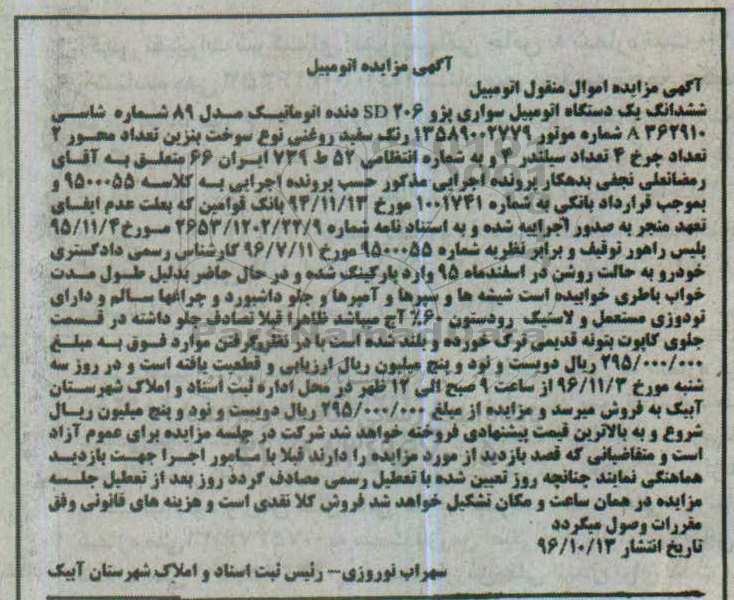 آگهی مزایده اتومبیل
آگهی مزایده اموال منقول اتومبیل
ششدانگ یک دستگاه اتومبیل سواری پژو ۲۰۶ SD دنده اتوماتیک مدل ۸۹ شماره شاسی
۳۶۲۹۱۰ A شماره موتور ۱۳۵۸۹۰۰۲۷۷۹ رنگ سفید روغنی نوع سوخت بنزین تعداد محور ۲
تعداد چرخ ۴ تعداد سیلندر ۴ و به شماره انتظامی ۵۲ ط ۷۳۹ ایران ۶۶ متعلق به آقای
رمضانعلی نجفی بدهکار پرونده اجرایی مذکور حسب پرونده اجرایی به کلاسه ۹۵۰۰۰۵۵ و
بموجب قرارداد بانکی به شماره ۱۰۰۱۷۴۱ مورخ ۹۴/۱۱/۱۳ بانک قوامین که بعلت عدم ایفای
تعهد منجر به صدور اجرائیه شده و به استناد نامه شماره ۲۶۵۳/۱۲۰۲/۲۲/۹ مورخ ۹۵/۱۱/۴
پلیس راهور توقیف و برابر نظریه شماره ۹۵۰۰۰۵۵ مورخ ۹۶/۷/۱۱ کارشناس رسمی دادگستری
خودرو به حالت روشن در اسفندماه ۹۵ وارد پارکینگ شده و در حال حاضر بدلیل طول مدت
خواب باطری خوابیده است شیشه ها و سپرها و آمپرها و جلو داشبورد و چراغها سالم و دارای
تودوزی مستعمل و لاستیک رودستون ۶۰٪ آج میباشد ظاهرا قبلا تصادف جلو داشته در قسمت
جلوی کاپوت بتونه قدیمی ترک خورده و بلند شده است با در نظر گرفتن موارد فوق به مبلغ
۲۹۵/۰۰۰/۰۰۰ ریال دویست و نود و پنج میلیون ریال ارزیابی و قطعیت یافته است و در روز سه
شنبه مورخ ۹۶/۱۱/۳ از ساعت ۹ صبح الی ۱۲ ظهر در محل اداره ثبت اسناد و املاک شهرستان
آبیک به فروش میرسد و مزایده از مبلغ ۲۹۵/۰۰۰/۰۰۰ ریال دویست و نود و پنج میلیون ریال
شروع و به بالاترین قیمت پیشنهادی فروخته خواهد شد شرکت در جلسه مزایده برای عموم آزاد
است و متقاضیانی که قصد بازدید از مورد مزایده را دارند قبلا با مامور اجرا جهت بازدید
هماهنگی نمایند چنانچه روز تعیین شده با تعطیل رسمی مصادف گردد روز بعد از تعطیل جلسه
مزایده در همان ساعت و مکان تشکیل خواهد شد فروش کلا نقدی است و هزینه های قانونی وفق
مقررات وصول میگردد
تاریخ انتشار ۹۶/۱۰/۱۳
سهراب نوروزی- رئیس ثبت اسناد و املاک شهرستان آبیک